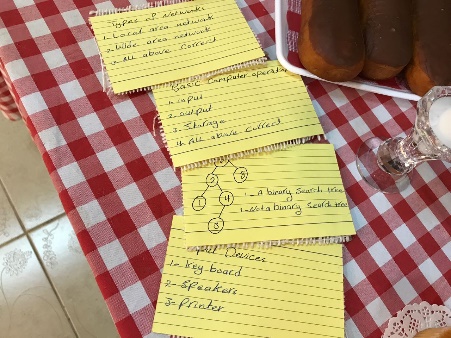 Types of Network
1. Local area network
2. Wide area network
3. All above correct
Basic Computer operation
1. input
2. output
3. Storage
4. All above correct
2
1
4
3
1- A binary Search tree
1- Not a binary Search tree
Devices
1- Key-board
2- Speakers
3- Printer